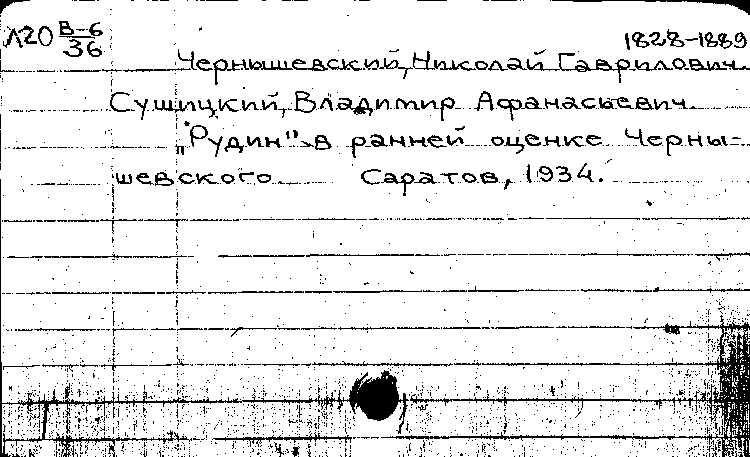 Л20 В-6/36
1828-1889
Чернышевский, Николай Гаврилович.
Сушицкий, Владимир Афанасьевич.
„Рудин" в ранней оценке Черны-
шевского Саратов, 1934.